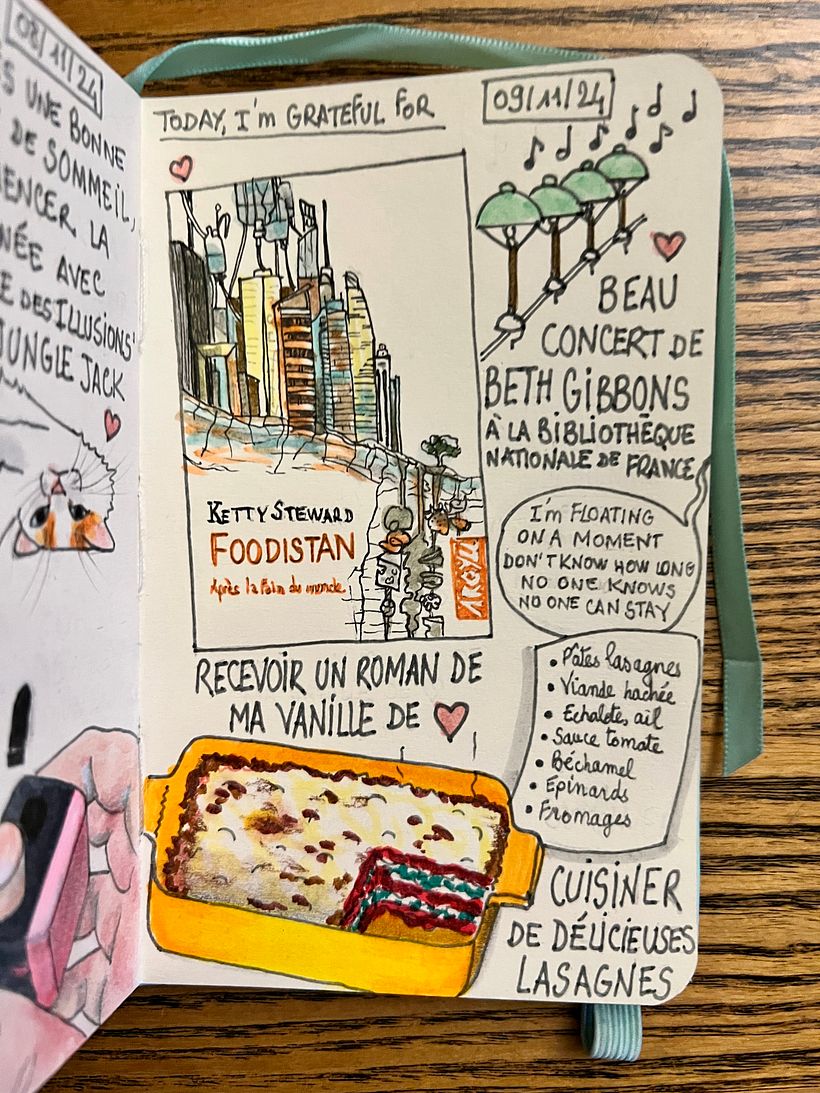 08/11/24
UNE BONNE
DE SOMMEIL,
LA
AVEC
DES ILLUSIONS'
JUNGLE JACK
TODAY, I'm GRATEFUL FOR
09/11/24
KETTY STEWARD
FOODISTAN
Après la faim du monde
ARGYLL
RECEVOIR UN ROMAN DE
MA VANILLE DE
BEAU
CONCERT DE
BETH GIBBONS
À LA BIBLIOTHÈQUE
NATIONALE DE FRANCE
I'm FLOATING
ON A MOMENT
DON'T KNOW HOW LONG
NO ONE KNOWS
NO ONE CAN STAY
• Pâtes lasagnes
• Viande hachée
• Echalotes ail
• Sauce tomate
• Béchamel
• Epinards
• Fromages
CUISINER
DE DÉLICIEUSES
LASAGNES